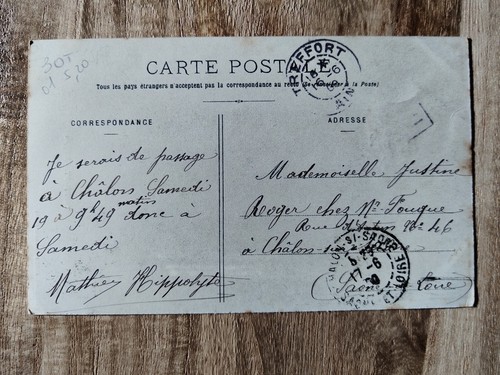 30T
5,20
CARTE POSTALE
Tous les pays étrangers n'acceptent pas la correspondance au recto (Se renseigner à la Poste)
CORRESPONDANCE
ADRESSE
TREFFORT
AIN
Je serais de passage
à Châlon Samedi
19 à 9h49 matin donc à
Samedi
Mathieu Hippolyte
Mademoiselle Justine
Roger chez Mr Fouque
Rue d'Autun No 46
à Châlon
Saône et Loire
CHALON-S/-SAONE
17-6
SAONE ET LOIRE